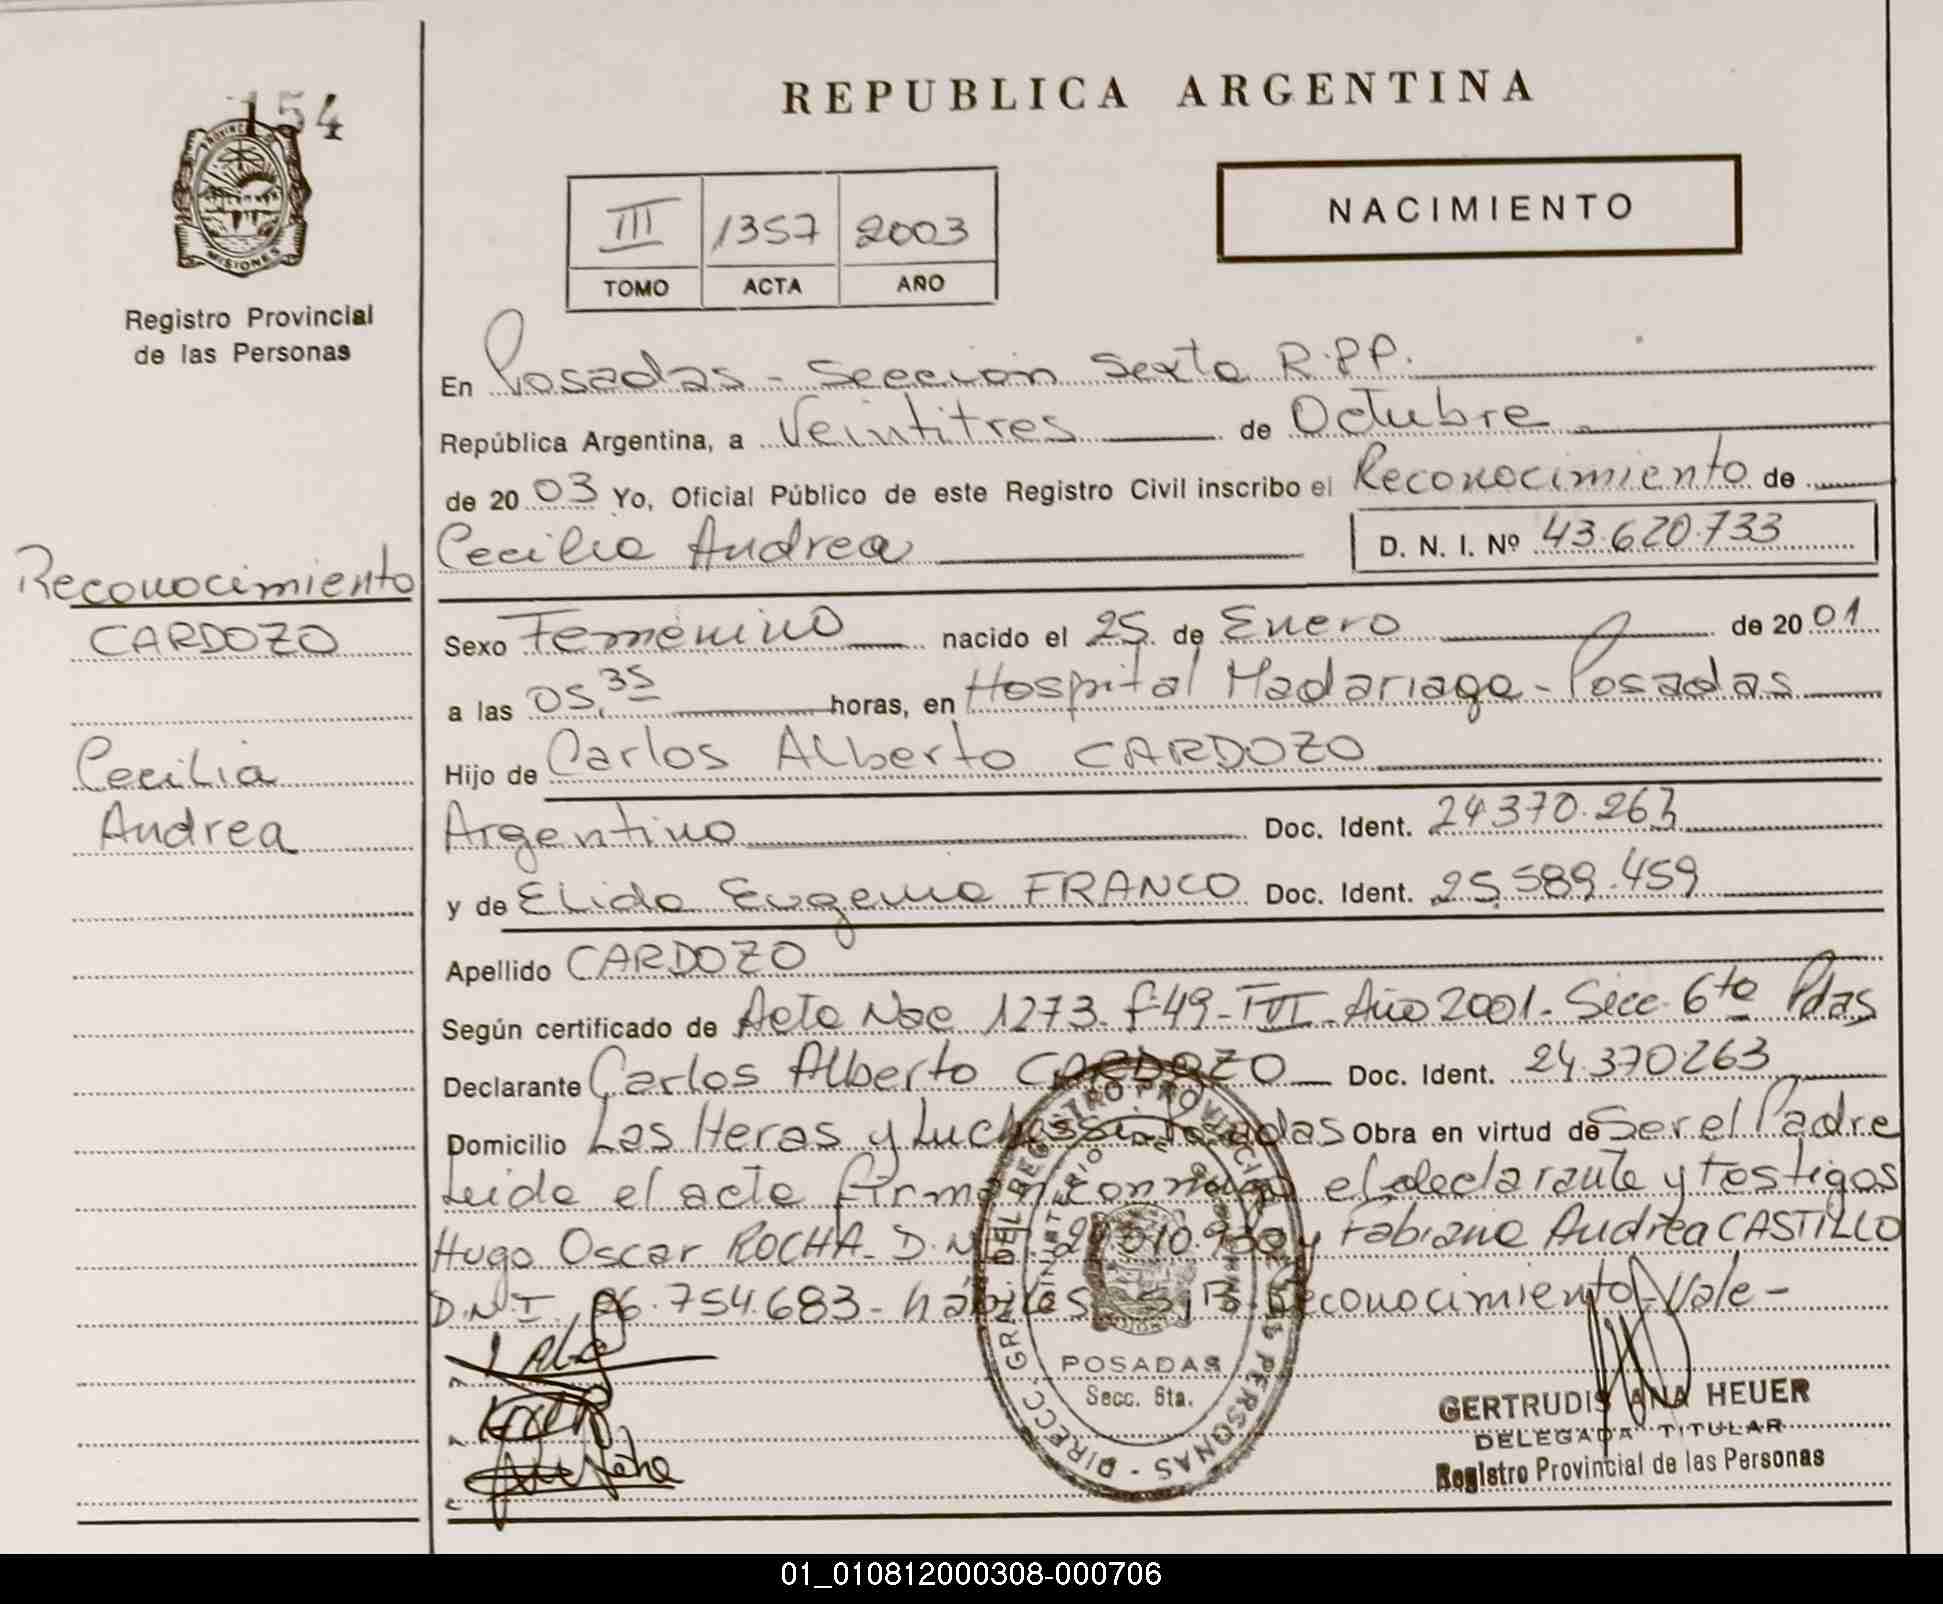 154
PROVINCIA
MISIONES
Registro Provincial
de las Personas
REPUBLICA ARGENTINA
III 1357 2003
TOMO ACTA AÑO
NACIMIENTO
En Posadas - Seccion Sexta R.P.P.
República Argentina, a Veintitres de Octubre
de 20 03 Yo, Oficial Público de este Registro Civil inscribo el Reconocimiento de
Cecilia Andrea D. N. I. Nº 43.620.733
Reconocimiento
CARDOZO
Cecilia
Andrea
Sexo Femenino nacido el 25 de Enero de 20 01
a las 05,35 horas, en Hospital Madariaga - Posadas
Hijo de Carlos Alberto CARDOZO
Argentino Doc. Ident. 24370.263
y de Elida Eugenia FRANCO Doc. Ident. 25.589.459
Apellido CARDOZO
Según certificado de Acta Nac 1273- f-49- TVI- Año 2001- Secc. 6ta Pdas
Declarante Carlos Alberto CARDOZO Doc. Ident. 24.370.263
Domicilio Las Heras y Posadas Obra en virtud de Ser el Padre
Leida el acta firman conmigo el declarante y testigos
Hugo Oscar ROCHA- D.N.I. y Fabiana Andrea CASTILLO
D.N.I. 26.754.683- hábiles. S/B- Reconocimiento- Vale-
DIRECC. GRAL. DEL REGISTRO PROVINCIAL DE LAS PERSONAS
MINISTERIO DE GOBIERNO
POSADAS
Secc. 6ta.
GERTRUDIS ANA HEUER
DELEGADA TITULAR
Registro Provincial de las Personas
01_010812000308-000706